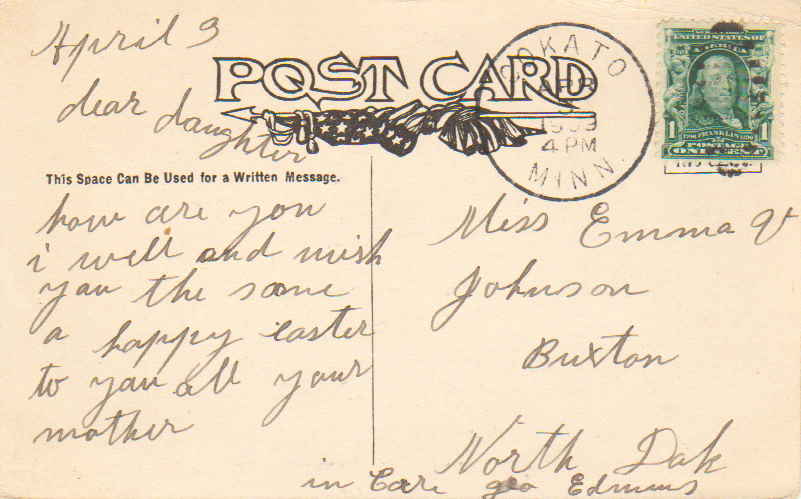 April 3
POST CARD
COKATO
APR
3
1909
4 PM
MINN.
UNITED STATES OF
AMERICA
1 FRANKLIN 1
POSTAGE
ONE CENT
dear daughter
This Space Can Be Used for a Written Message.
how are you
i well and wish
you the same
a happy easter
to you all your
mother
Miss Emma V
Johnson
Buxton
North Dak
in Care geo Edmuns